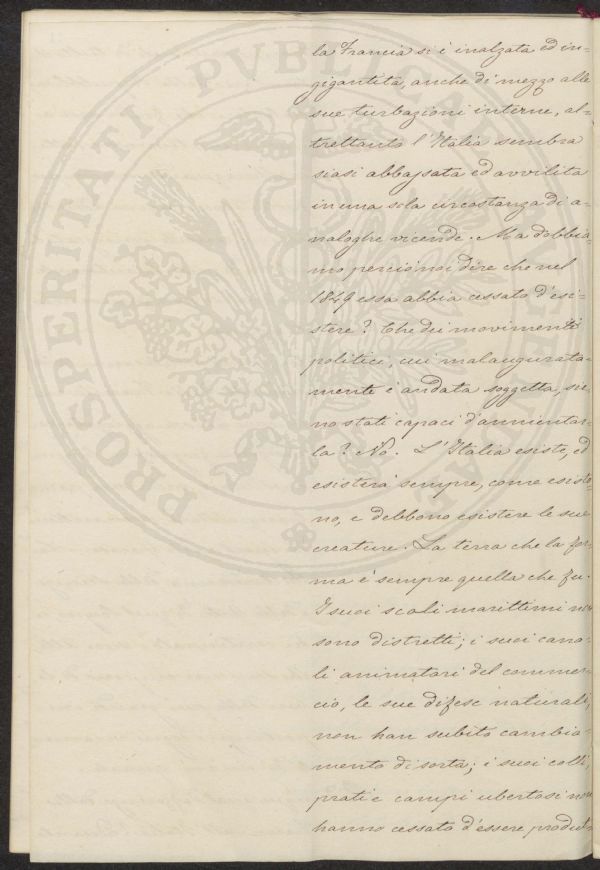 la Francia si è inalzata ed in-
gigantita, anche di mezzo alle
sue turbazioni interne, al-
trettanto l'Italia sembra
siasi abbassata ed avvilita
in una sola circostanza di a-
naloghe vicende. Ma dobbia-
mo perciò noi dire che nel
1849 essa abbia cessato d'esi-
stere? Che dei movimenti
politici, cui malaugurata-
mente è andata soggetta, sie-
no stati capaci d'annientar-
la? No. L'Italia esiste, ed
esisterà sempre, come esisto-
no, e debbono esistere le sue
creature. La terra che la for-
ma è sempre quella che fu.
I suoi scali marittimi non
sono distretti; i suoi cana-
li animatori del commer-
cio, le sue difese naturali,
non han subito cambia-
mento di sorta; i suoi colli,
prati e campi ubertosi non
hanno cessato d'essere produt-
PROSPERITATI PVBLICAE AVGENDAE